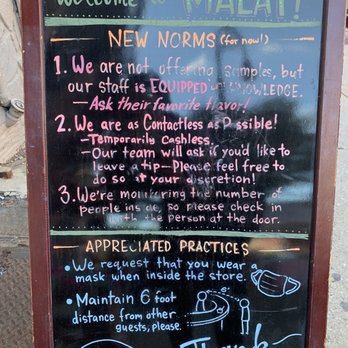 Welcome to MALAI!
NEW NORMS (for now!)
1. We are not offering samples, but
our staff is EQUIPPED with KNOWLEDGE.
—Ask their favorite flavor!
2. We are as Contactless as Possible!
—Temporarily Cashless.
—Our team will ask if you'd like to
leave a tip—Please feel free to
do so at your discretion!
3. We're monitoring the number of
people inside, so please check in
with the person at the door.
APPRECIATED PRACTICES
• We request that you wear a
mask when inside the store.
• Maintain 6 foot
distance from other
guests, please.
Thank